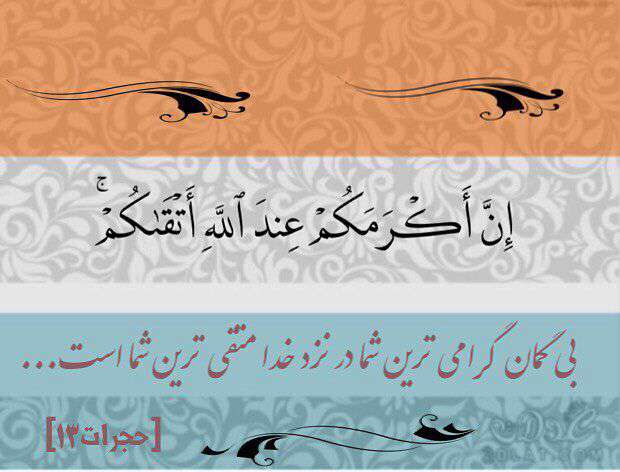 إِنَّ أَكْرَمَكُمْ عِندَ ٱللَّهِ أَتْقَىٰكُمْ ۚ
بی گمان گرامی ترین شما در نزد خدا متقی ترین شما است...
[حجرات ۱۳]